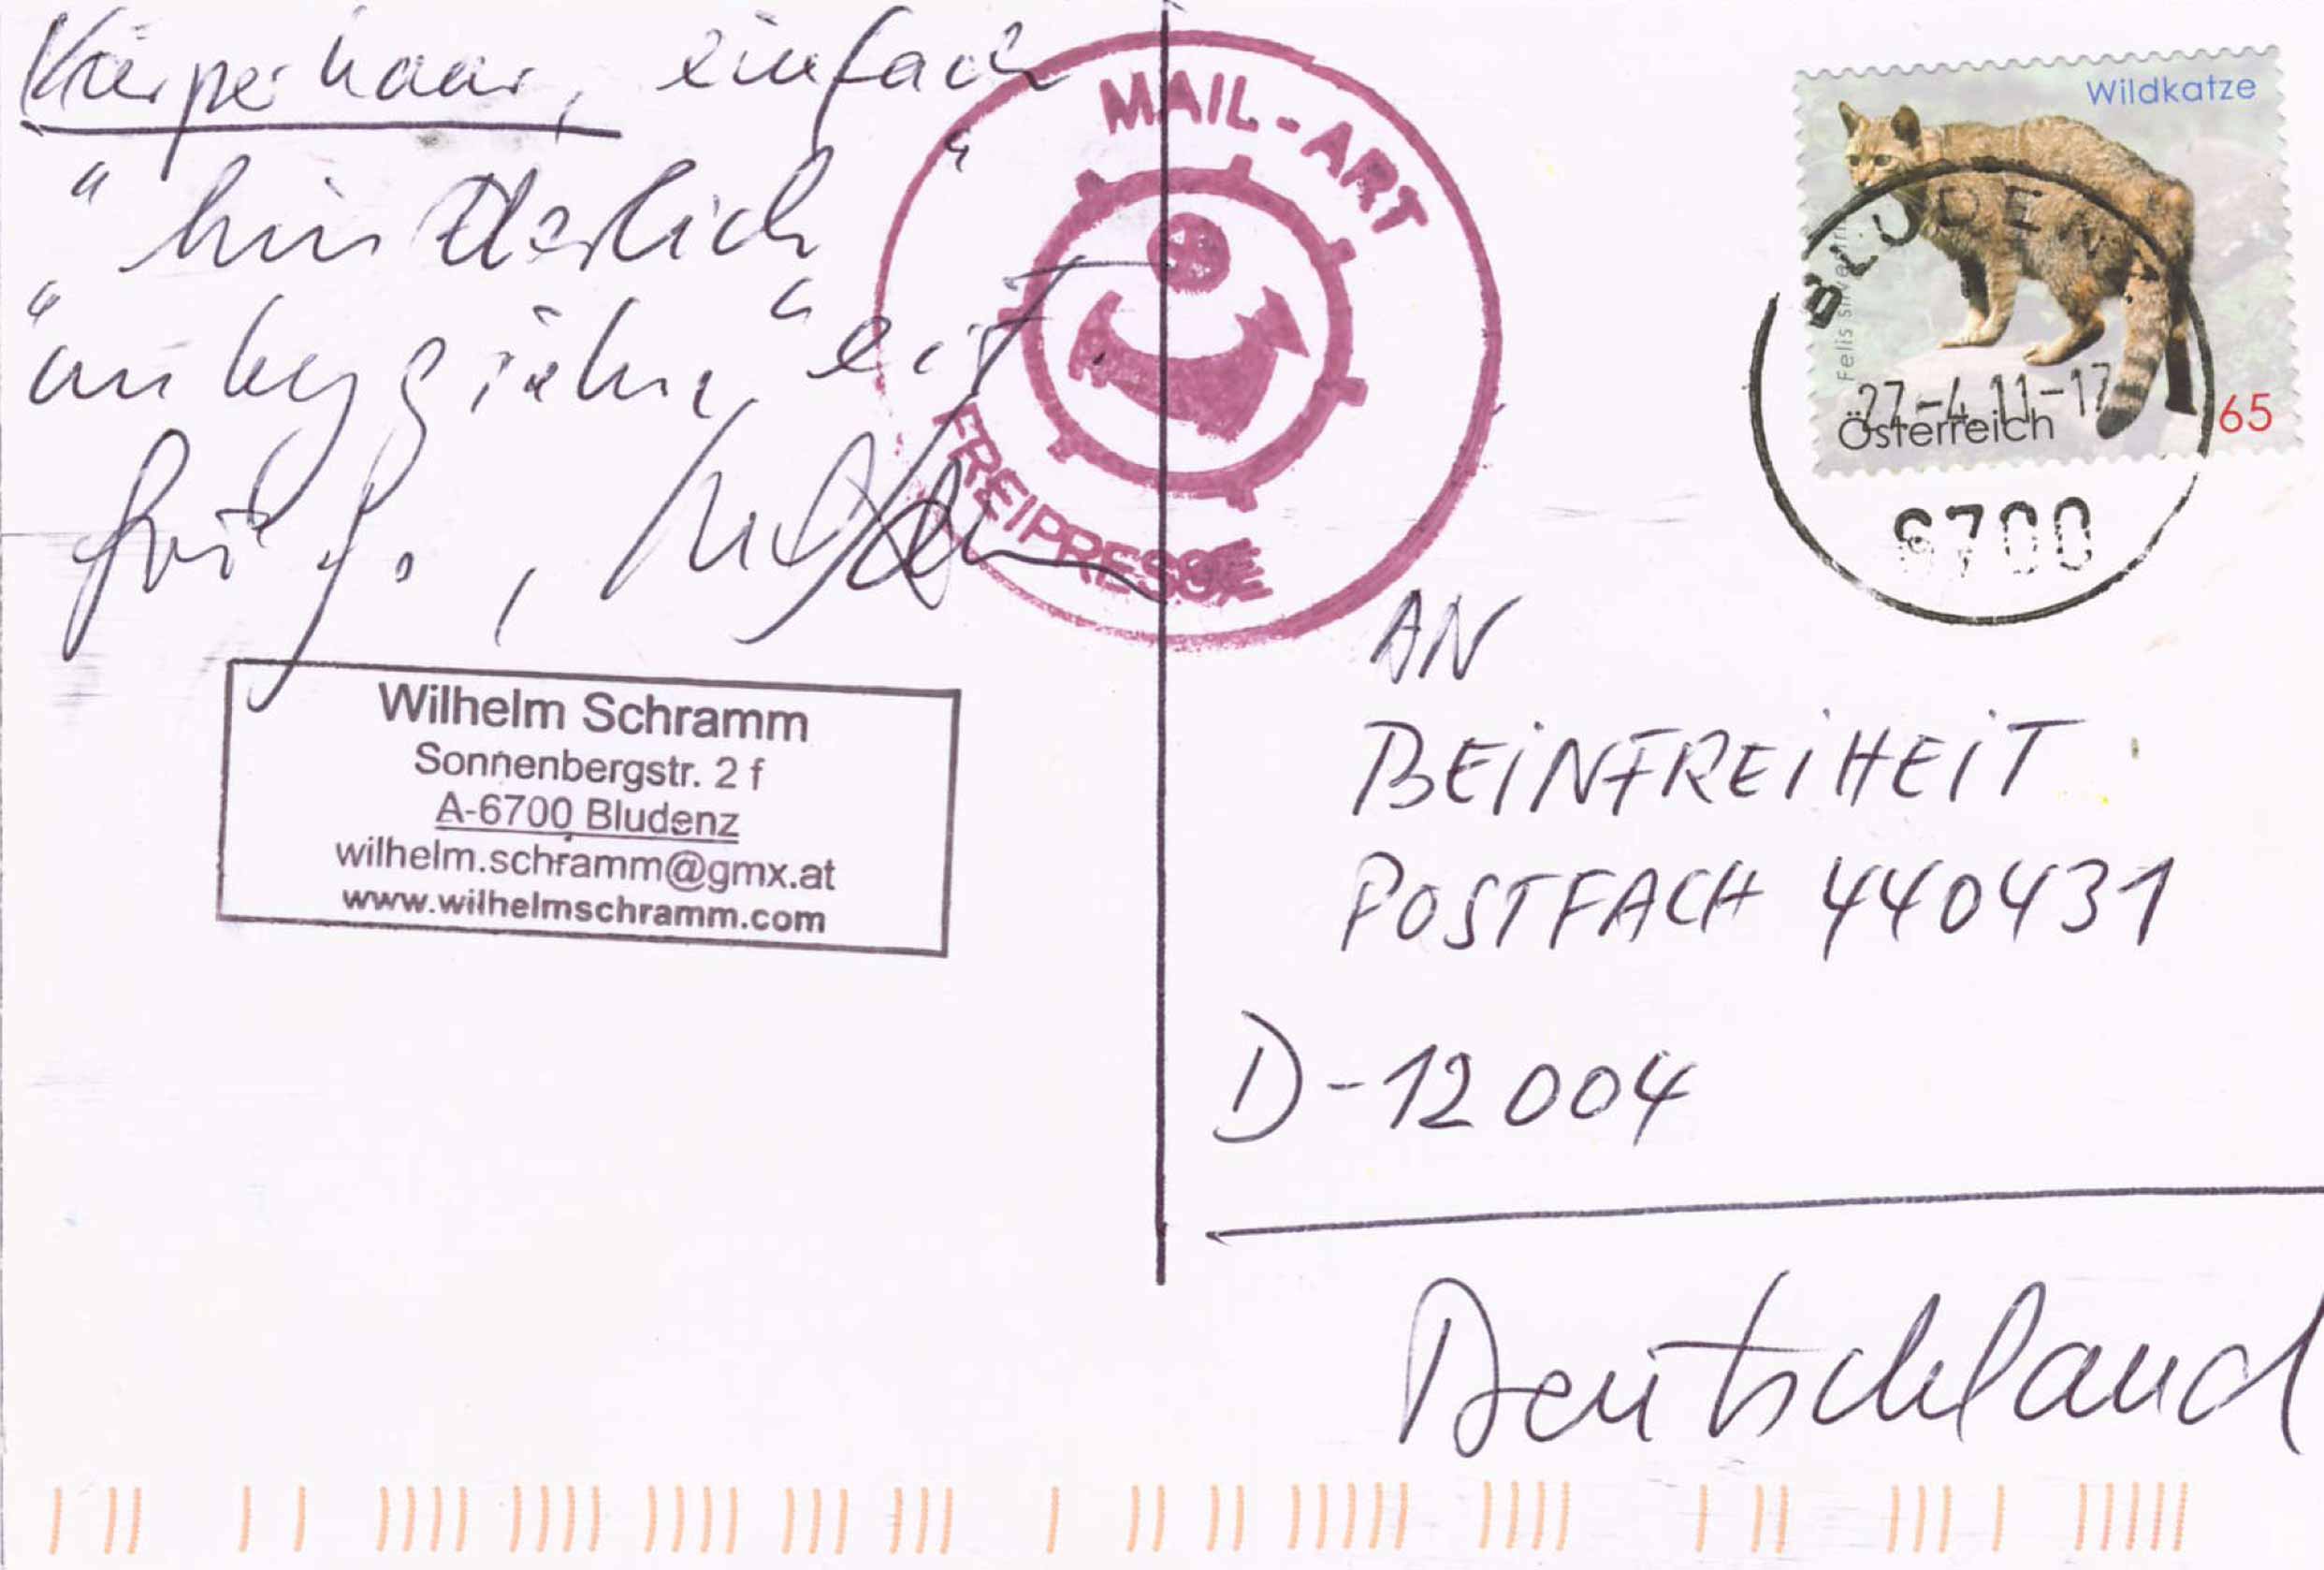 Körperhaar, einfach
MAIL-ART
FREIPRESSE
Wilhelm Schramm
Sonnenbergstr. 2 f
A-6700 Bludenz
wilhelm.schramm@gmx.at
www.wilhelmschramm.com
Wildkatze
Felis silvestris
Österreich
65
BLUDENZ
27-4.11-17
6700
AN
BEINFREIHEIT
POSTFACH 440431
D-12004
Deutschland